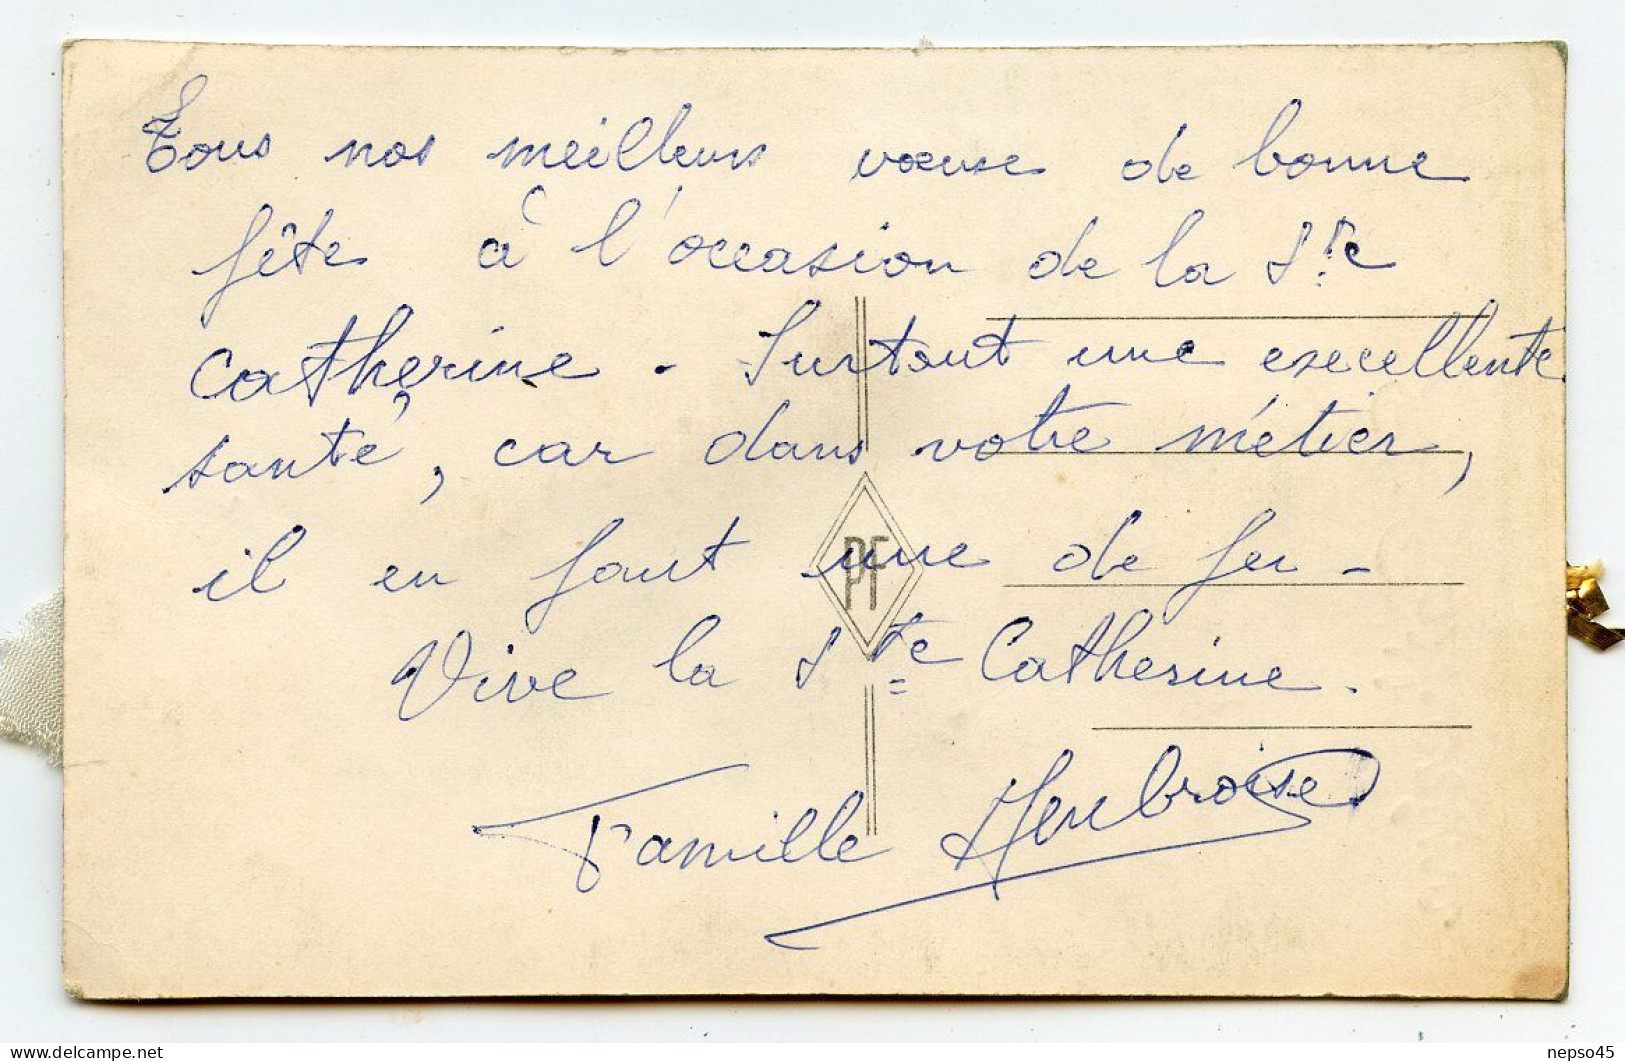 Tous nos meilleurs vœux de bonne
fête à l'occasion de la Ste
Catherine. Surtout une excellente
santé, car dans votre métier,
il en faut une de fer -
PF
Vive la Ste Catherine.
Famille
delcampe.net
nepso45